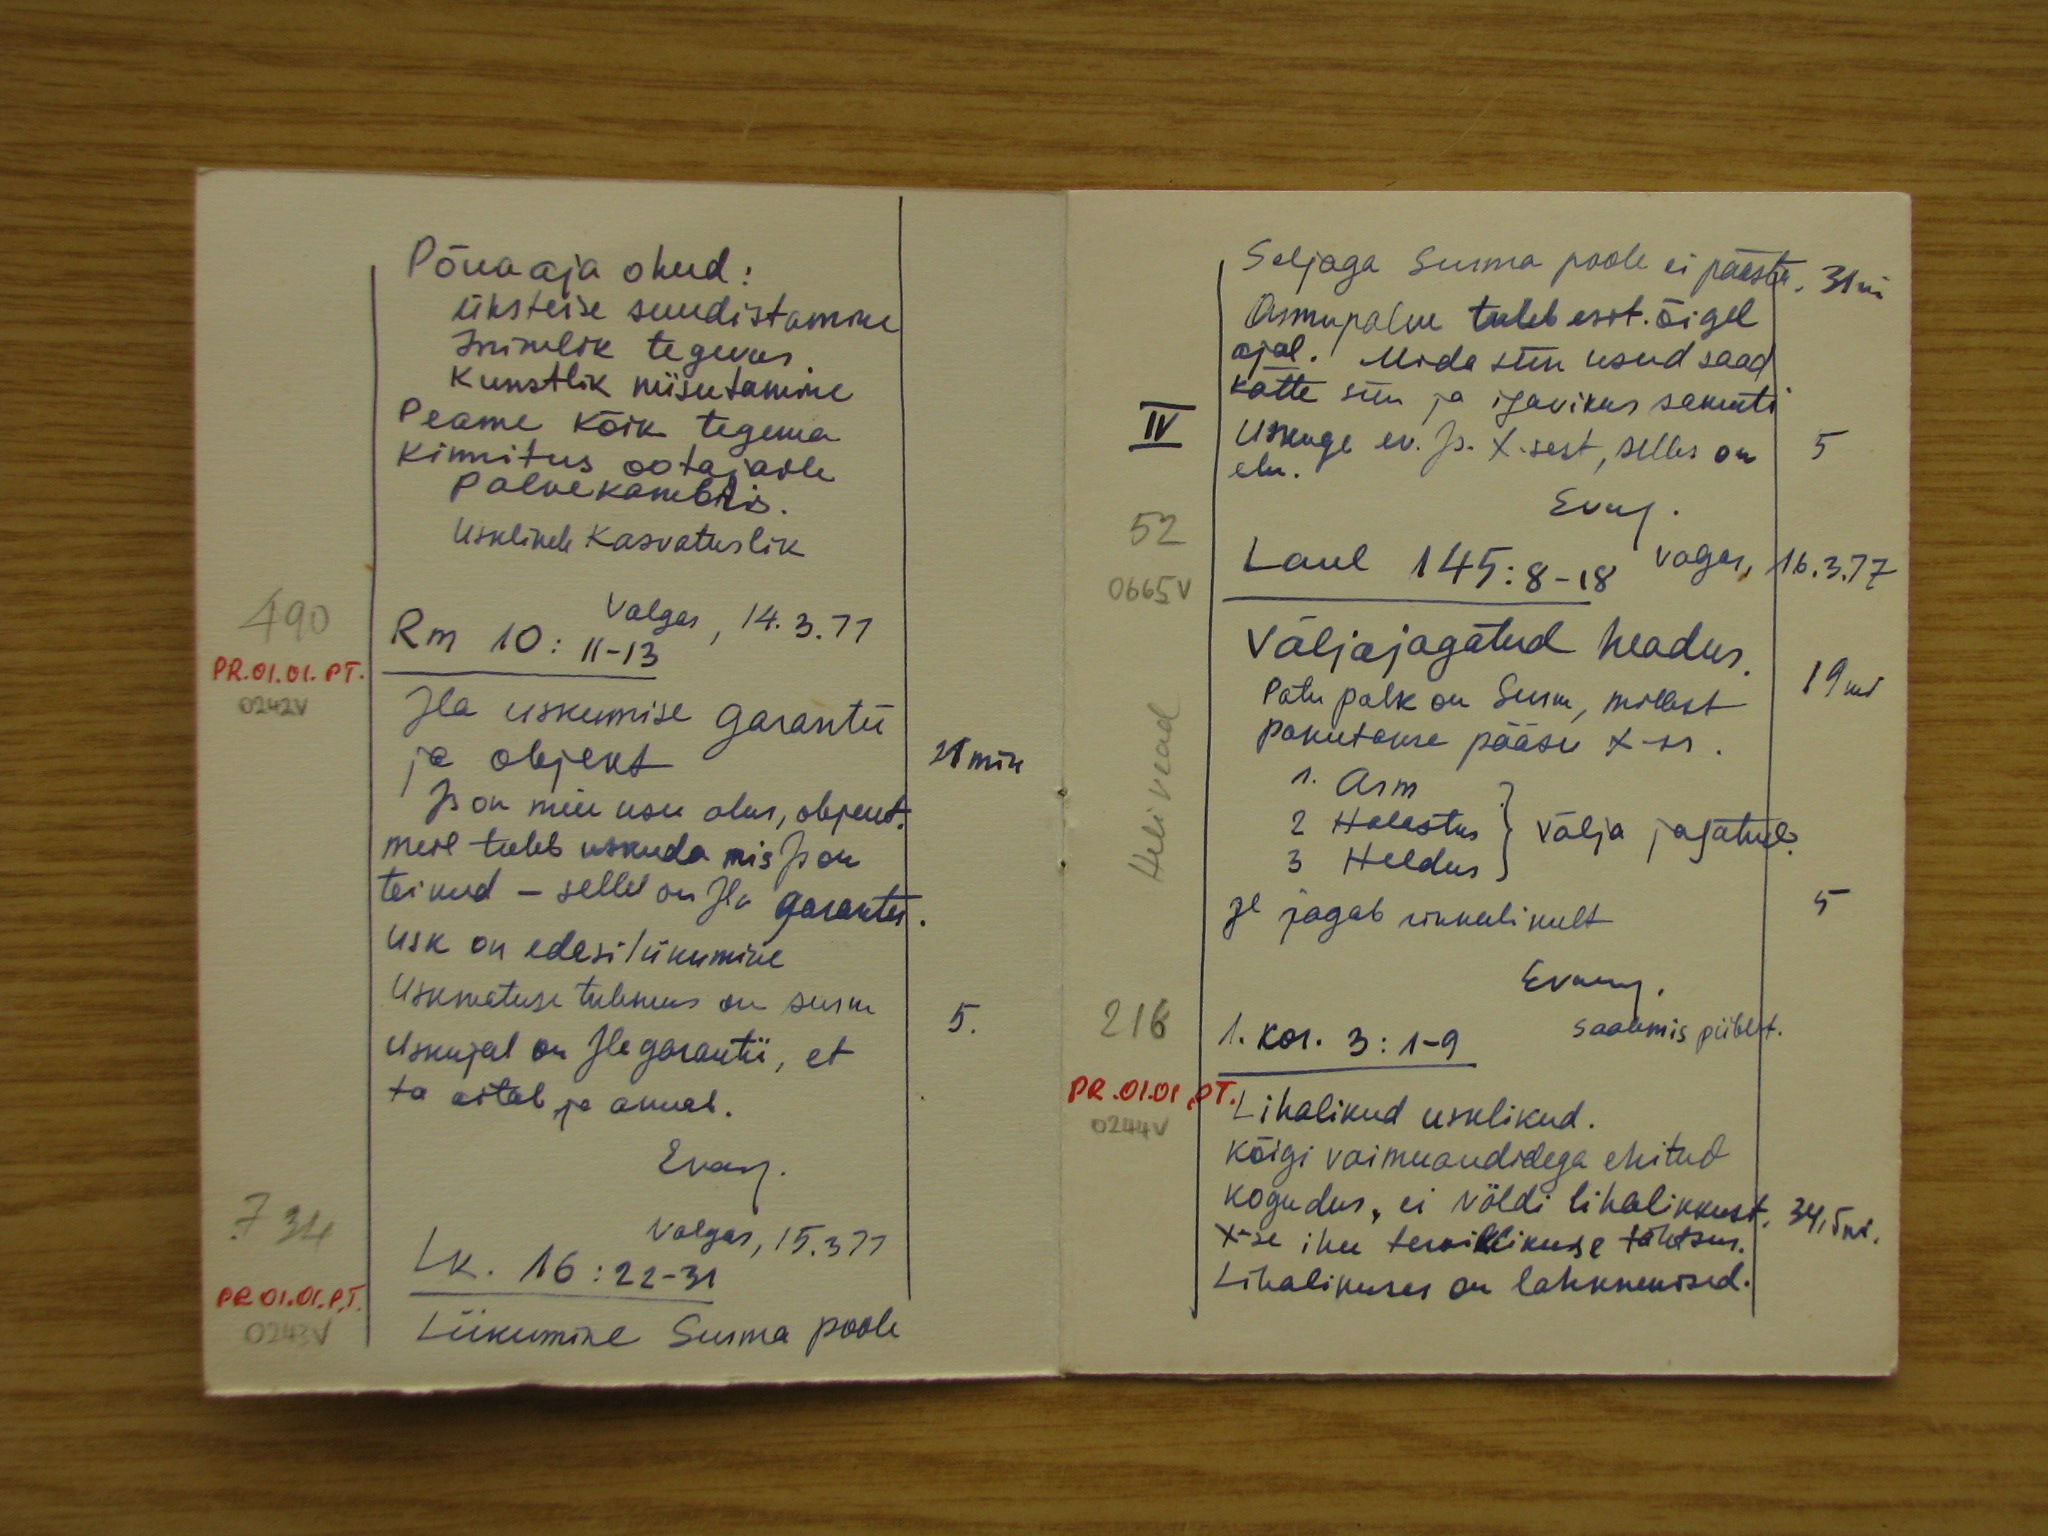 Põuaaja ohud:
üksteise suudistamine
Inimlik tegevus.
Kunstlik niisutamine
Peame kõik tegema
Kinnitus ootajaile
Palvekambris.
Usklikele Kasvatuslik
490
Valgas, 14.3.77
Rm 10: 11-13
PR.01.01.PT.
0242V
Jla uskumise garantii
ja objekt
21 min
Js on meie usu alus, objekt.
meil tuleb uskuda mis Js on
teinud – sellel on Jla garantii.
Usk on edasiliikumine
Uskmatuse tulemus on surm
5.
Uskujal on Jla garantii, et
ta aitab ja annab.
Evang.
734
Valgas, 15.3 77
Lk. 16:22-31
PR.01.01.PT.
0243V
Liikumine Surma poole
Seljaga Surma poole ei päästa. 31 mi
Armupalve tuleb esit. õigel
ajal. Mida siin usud saad
kätte siin ja igavikus samuti
IV
Uskuge ev. Js. X-sest, selles on 5
elu.
Evang.
52
Laul 145:8-18 Valgas, 16.3.77
0665V
Väljajagatud headus.
19 mi
Patu palk on Surm, millest
pakutakse pääsu X-ses.
1. Arm
2 Halastus } välja jagatud.
3 Heldus
Helivead
Jl jagab rikkalikult 5
Evang.
216
Saalemis piiblit.
1. Kor. 3:1-9
PR.01.01.PT.
0244V
Lihalikud usklikud.
Kõigi vaimuandidega ehitud
kogudus, ei võldi lihalikkust. 34,5 mi.
X-se ihu terviklikuse tähtsus.
Lihalikuses on lahknemised.